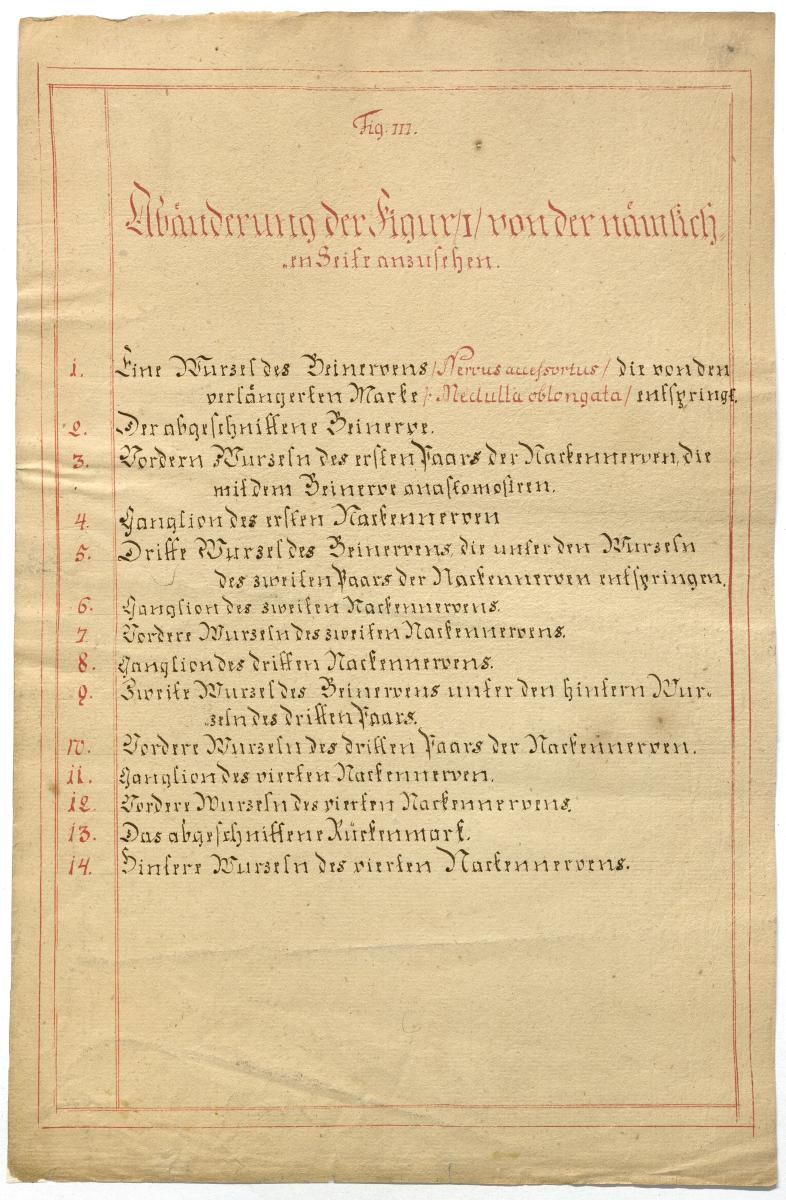 Fig. III.
Abänderung der Figur /I/ von der nämlich-
en Seite anzusehen.
1. Eine Wurzel des Beinervens /Nervus accessorius/ die von den
verlängerten Marke /: Medulla oblongata/ entspringt.
2. Der abgeschnittene Beinerve.
3. Vordern Wurzeln des ersten Paars der Nackennerven, die
mit dem Beinerve anastomosiren.
4. Ganglion des ersten Nackennerven
5. Dritte Wurzel des Beinervens, die unter den Wurzeln
des zweiten Paars der Nackennerven entspringen.
6. Ganglion des zweiten Nackennervens.
7. Vordere Wurzeln des zweiten Nackennervens.
8. Ganglion des dritten Nackennervens.
9. Zweite Wurzel des Beinervens unter den hintern Wur-
zeln des dritten Paars.
10. Vordere Wurzeln des dritten Paars der Nackennerven.
11. Ganglion des vierten Nackennerven.
12. Vordere Wurzeln des vierten Nackennervens.
13. Das abgeschnittene Rückenmark.
14. Hintere Wurzeln des vierten Nackennervens.